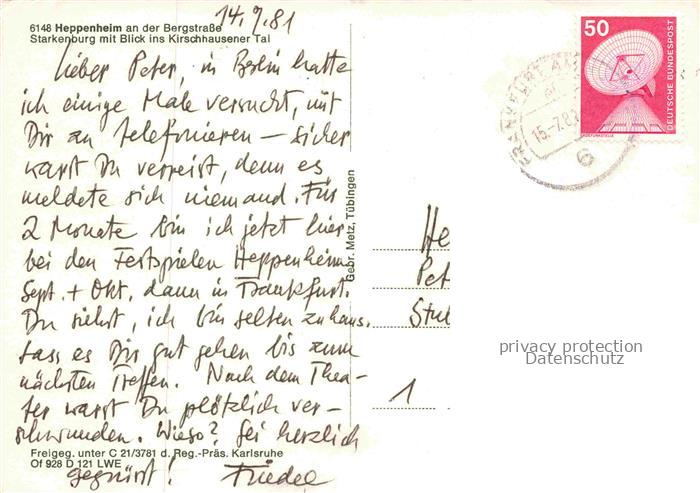 14.7.81
6148 Heppenheim an der Bergstraße
Starkenburg mit Blick ins Kirschhausener Tal
Lieber Peter, in Berlin hatte
ich einige Male versucht, mit
Dir zu telefonieren – sicher
warst Du verreist, denn es
meldete sich niemand. Für
2 Monate bin ich jetzt hier
bei den Festspielen Heppenheim
Sept. + Okt. dann in Frankfurt.
Du siehst, ich bin selten zuhaus.
Lass es Dir gut gehen bis zum
nächsten Treffen. Nach dem Thea-
ter warst Du plötzlich ver-
schwunden. Wieso? Sei herzlich
gegrüsst! Friedel
Freigeg. unter C 21/3781 d. Reg.-Präs. Karlsruhe
Of 928 D 121 LWE
Gebr. Metz, Tübingen
50
DEUTSCHE BUNDESPOST
FRANKFURT AM
15.-7.81
He
Pet
Stu
1
privacy protection
Datenschutz